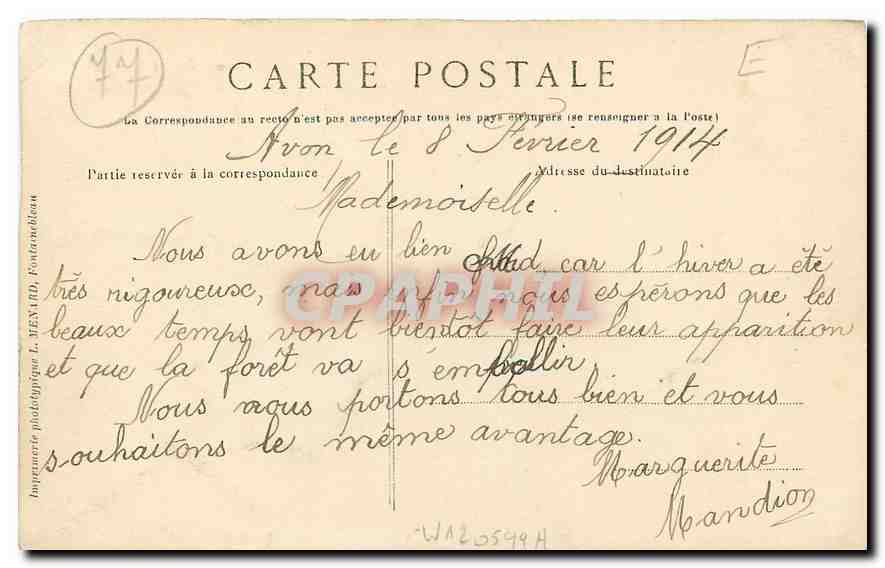 77
E
CARTE POSTALE
La Correspondance au recto n'est pas acceptée par tous les pays étrangers (se renseigner a la Poste)
Avon le 8 Février 1914
Partie reservée à la correspondance
Adresse du destinataire
Mademoiselle.
Nous avons eu bien froid, car l'hiver a été
très rigoureux, mais enfin nous espérons que les
beaux temps vont bientôt faire leur apparition
et que la forêt va s'embellir,
Nous nous portons tous bien et vous
souhaitons le même avantage.
Marguerite
Mandion
Imprimerie phototypique L. MENARD, Fontainebleau
CPAPHIL
WA20599H